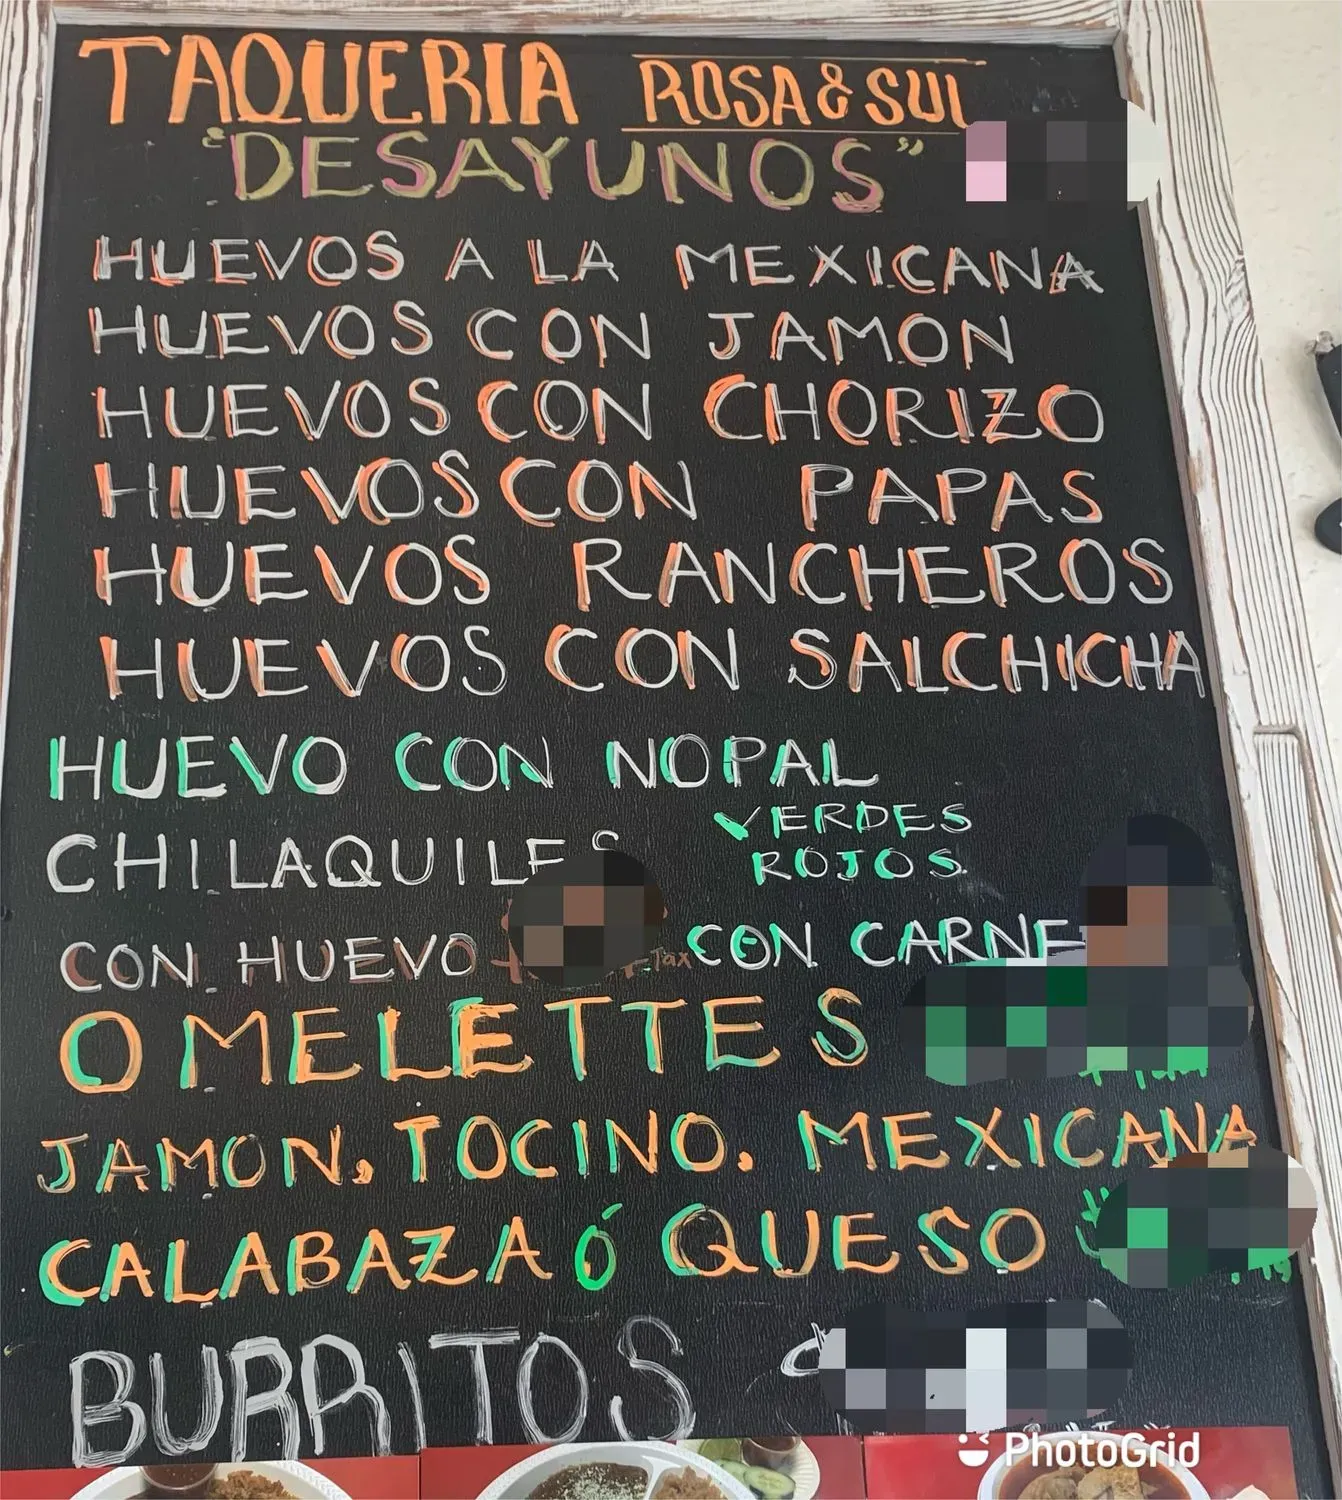 TAQUERIA ROSA & SUL
"DESAYUNOS"
HUEVOS A LA MEXICANA
HUEVOS CON JAMON
HUEVOS CON CHORIZO
HUEVOS CON PAPAS
HUEVOS RANCHEROS
HUEVOS CON SALCHICHA
HUEVO CON NOPAL
CHILAQUILES VERDES
ROJOS.
CON HUEVO +Tax CON CARNE
OMELETTES
JAMON, TOCINO. MEXICANA
CALABAZA Ó QUESO
BURRITOS
PhotoGrid